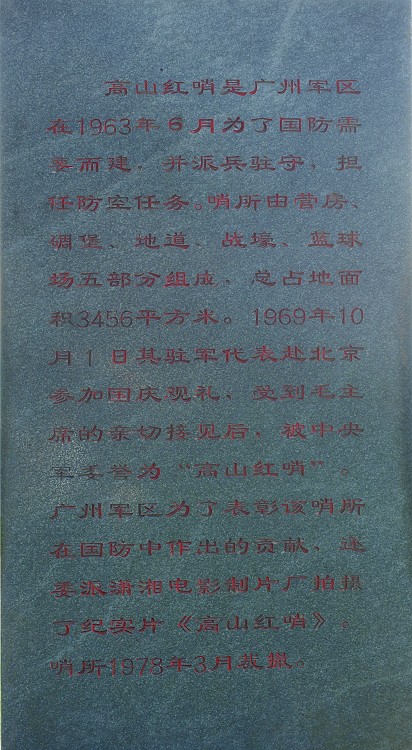 高山红哨是广州军区
在1963年6月为了国防需
要而建，并派兵驻守，担
任防空任务。哨所由营房、
碉堡、地道、战壕、蓝球
场五部分组成，总占地面
积3456平方米。1969年10
月1日其驻军代表赴北京
参加国庆观礼，受到毛主
席的亲切接见后，被中央
军委誉为“高山红哨”。
广州军区为了表彰该哨所
在国防中作出的贡献，遂
委派潇湘电影制片厂拍摄
了纪实片《高山红哨》。
哨所1978年3月裁撤。